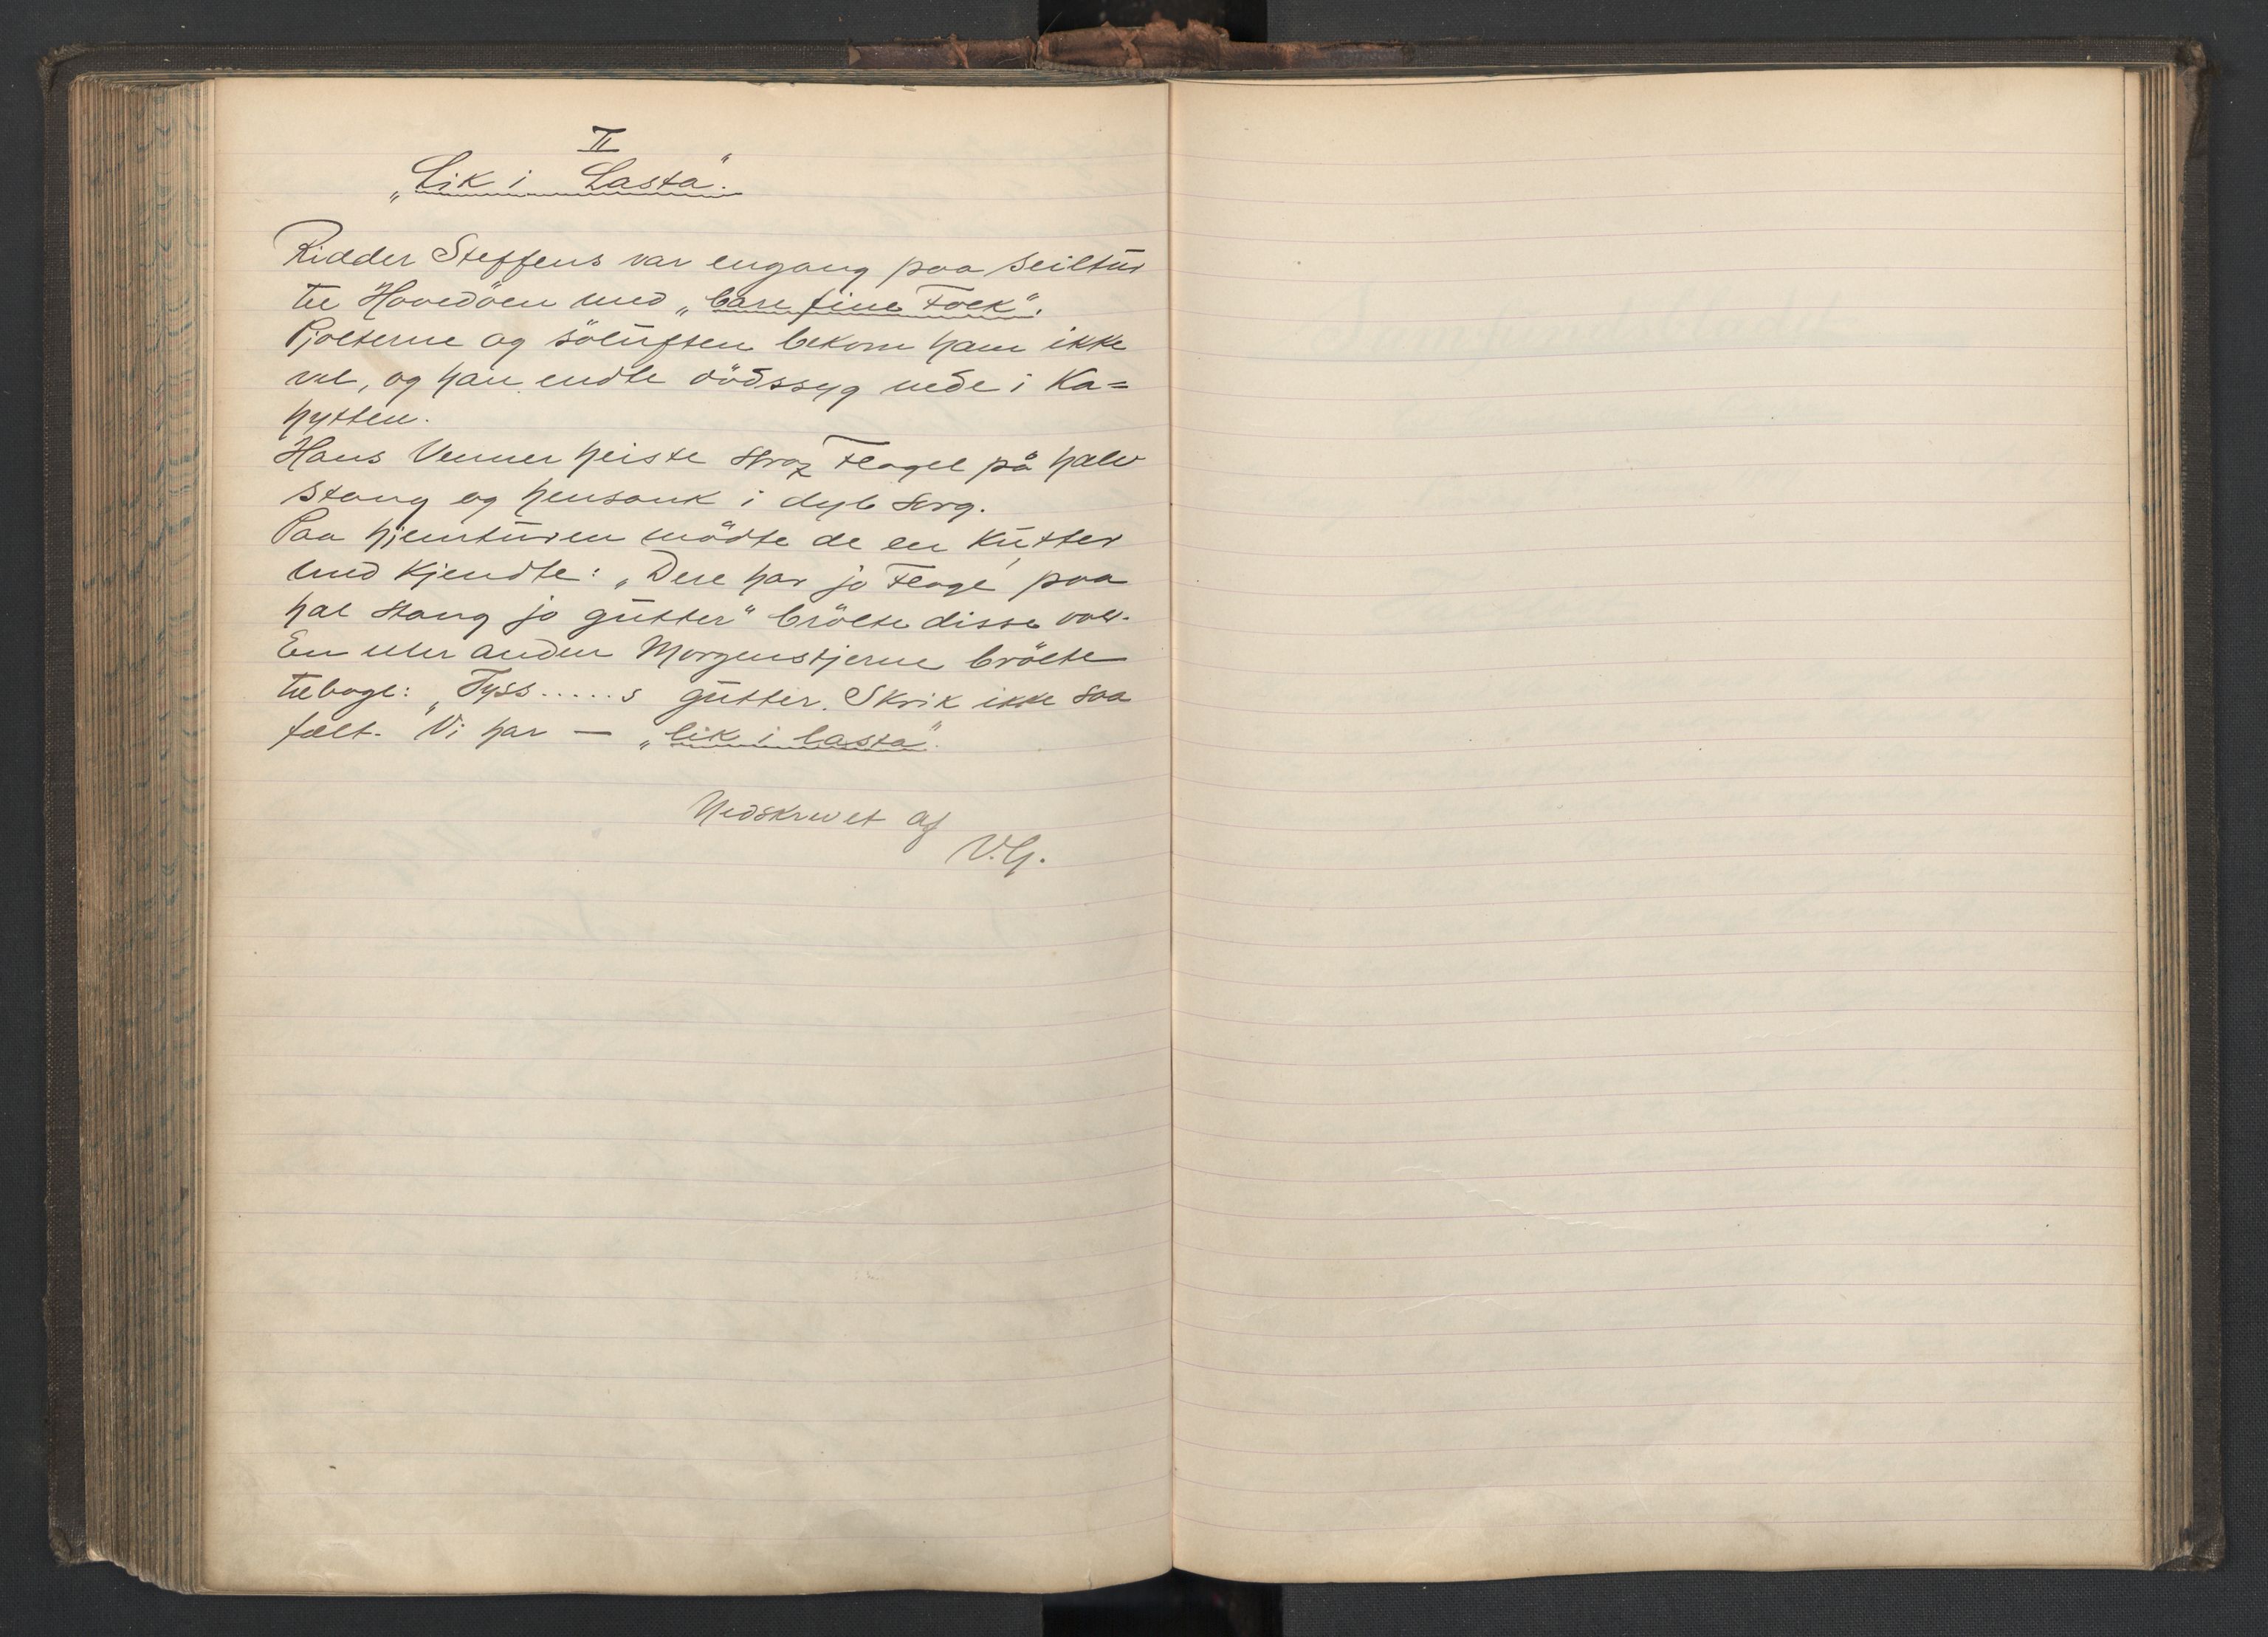 II
„Lik i Lasta".
Ridder Steffens var engang paa Seiltur
til Hovedöen med „bare fine Folk".
Pjolterne og söluften bekom ham ikke
vel, og han endte dödssyg nede i Ka=
hytten.
Hans Venner heiste strax Flaget på halv
stang og hensank i dyb sorg.
Paa hjemturen mödte de en Kutter
med Kjendte: „Dere har jo Flage' paa
hal stang jo gutter" brölte disse over.
En eller anden Morgenstjerne brölte
tilbage: „Tyss.....s gutter. Skrik ikke saa
fælt. Vi har — „lik i lasta".
Nedskrevet af
V.G.